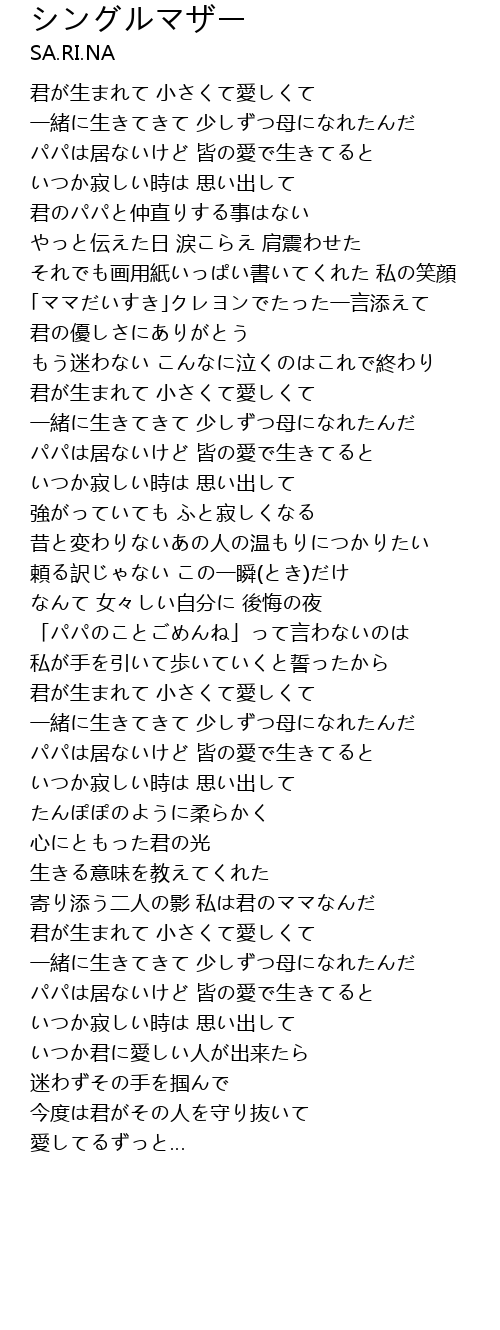 シングルマザー
SA.RI.NA
君が生まれて 小さくて愛しくて
一緒に生きてきて 少しずつ母になれたんだ
パパは居ないけど 皆の愛で生きてると
いつか寂しい時は 思い出して
君のパパと仲直りする事はない
やっと伝えた日 涙こらえ 肩震わせた
それでも画用紙いっぱい書いてくれた 私の笑顔
「ママだいすき」クレヨンでたった一言添えて
君の優しさにありがとう
もう迷わない こんなに泣くのはこれで終わり
君が生まれて 小さくて愛しくて
一緒に生きてきて 少しずつ母になれたんだ
パパは居ないけど 皆の愛で生きてると
いつか寂しい時は 思い出して
強がっていても ふと寂しくなる
昔と変わりないあの人の温もりにつかりたい
頼る訳じゃない この一瞬(とき)だけ
なんて 女々しい自分に 後悔の夜
「パパのことごめんね」って言わないのは
私が手を引いて歩いていくと誓ったから
君が生まれて 小さくて愛しくて
一緒に生きてきて 少しずつ母になれたんだ
パパは居ないけど 皆の愛で生きてると
いつか寂しい時は 思い出して
たんぽぽのように柔らかく
心にともった君の光
生きる意味を教えてくれた
寄り添う二人の影 私は君のママなんだ
君が生まれて 小さくて愛しくて
一緒に生きてきて 少しずつ母になれたんだ
パパは居ないけど 皆の愛で生きてると
いつか寂しい時は 思い出して
いつか君に愛しい人が出来たら
迷わずその手を掴んで
今度は君がその人を守り抜いて
愛してるずっと...